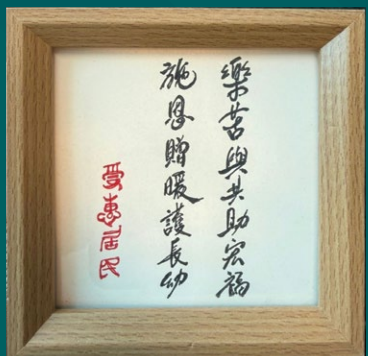 樂苦與共助宏福
施恩贈暖護長幼
受惠居民